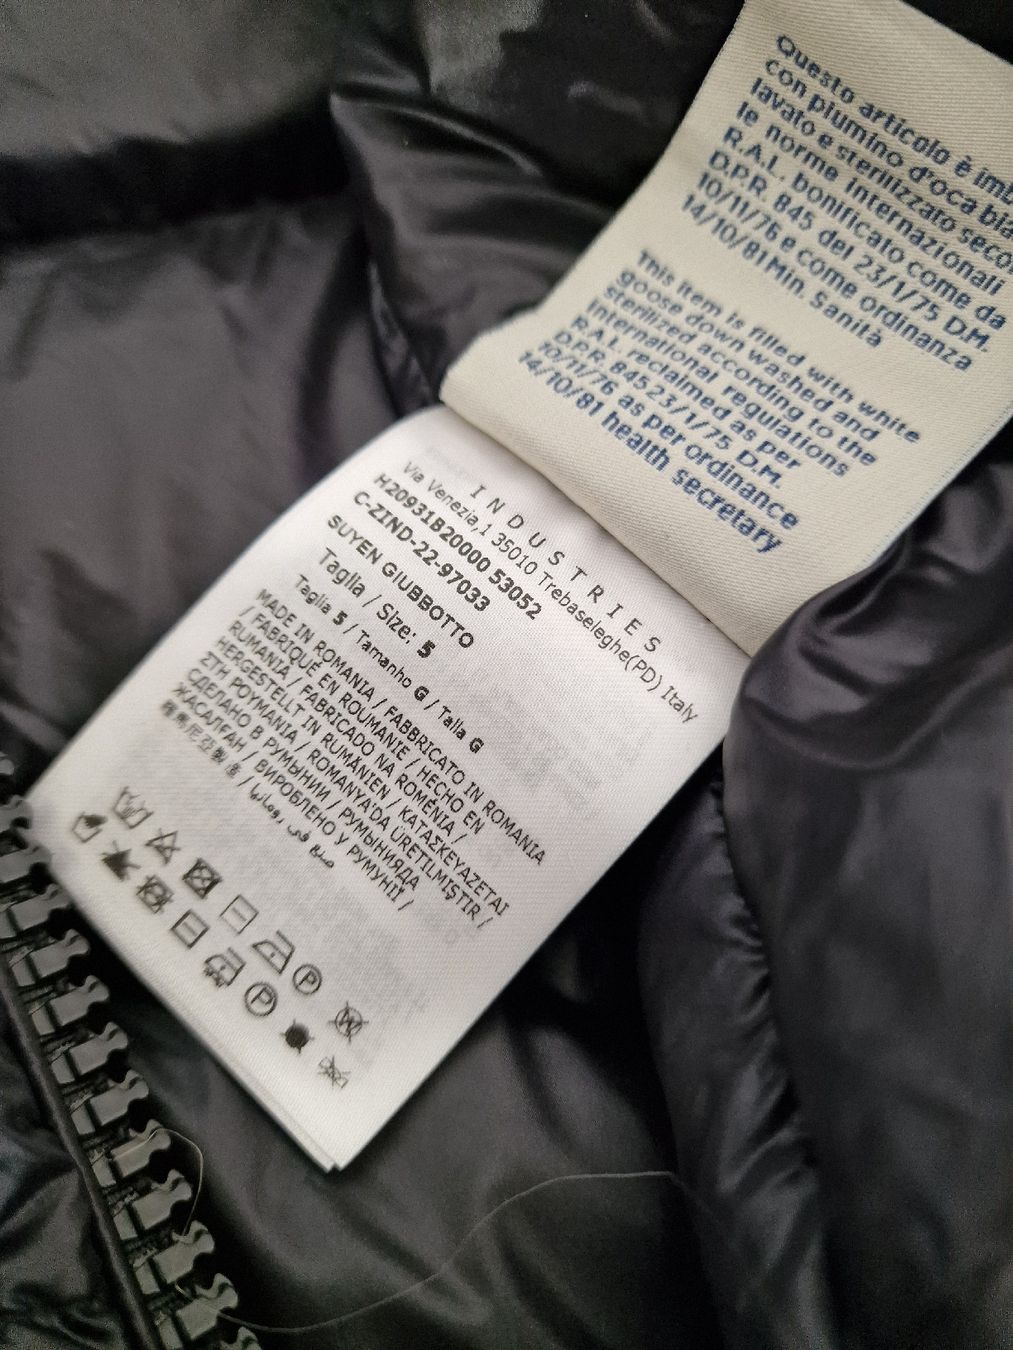 Questo articolo è imb
con piumino d'oca bia
lavato e sterilizzato seco
le norme internazionali
R.A.L. bonificato come da
D.P.R. 845 del 23/1/75 D.M.
10/11/76 e come ordinanza
14/10/81 Min. Sanità
This item is filled with white
goose down washed and
sterilized according to the
international regulations
R.A.L. reclaimed as per
D.P.R. 845 23/1/75 D.M.
10/11/76 as per ordinance
14/10/81 health secretary
INDUSTRIES
Via Venezia,1 35010 Trebaseleghe(PD) Italy
H20931B20000 53052
C-ZIND-22-97033
SUYEN GIUBBOTTO
Taglia / Size: 5
Taglia 5 / Tamanho G / Talla G
MADE IN ROMANIA / FABBRICATO IN ROMANIA
/ FABRIQUÉ EN ROUMANIE / HECHO EN
RUMANIA / FABRICADO NA ROMÉNIA /
HERGESTELLT IN RUMÄNIEN / ΚΑΤΑΣΚΕΥΑΖΕΤΑΙ
ΣΤΗ ΡΟΥΜΑΝΙΑ / ROMANYA'DA ÜRETILMIŞTIR /
СДЕЛАНО В РУМЫНИИ / РУМЫНИЯДА
ЖАСАЛҒАН / ВИРОБЛЕНО У РУМУНІЇ /
羅馬尼亞製造 / صنع في رومانيا
P
W
P